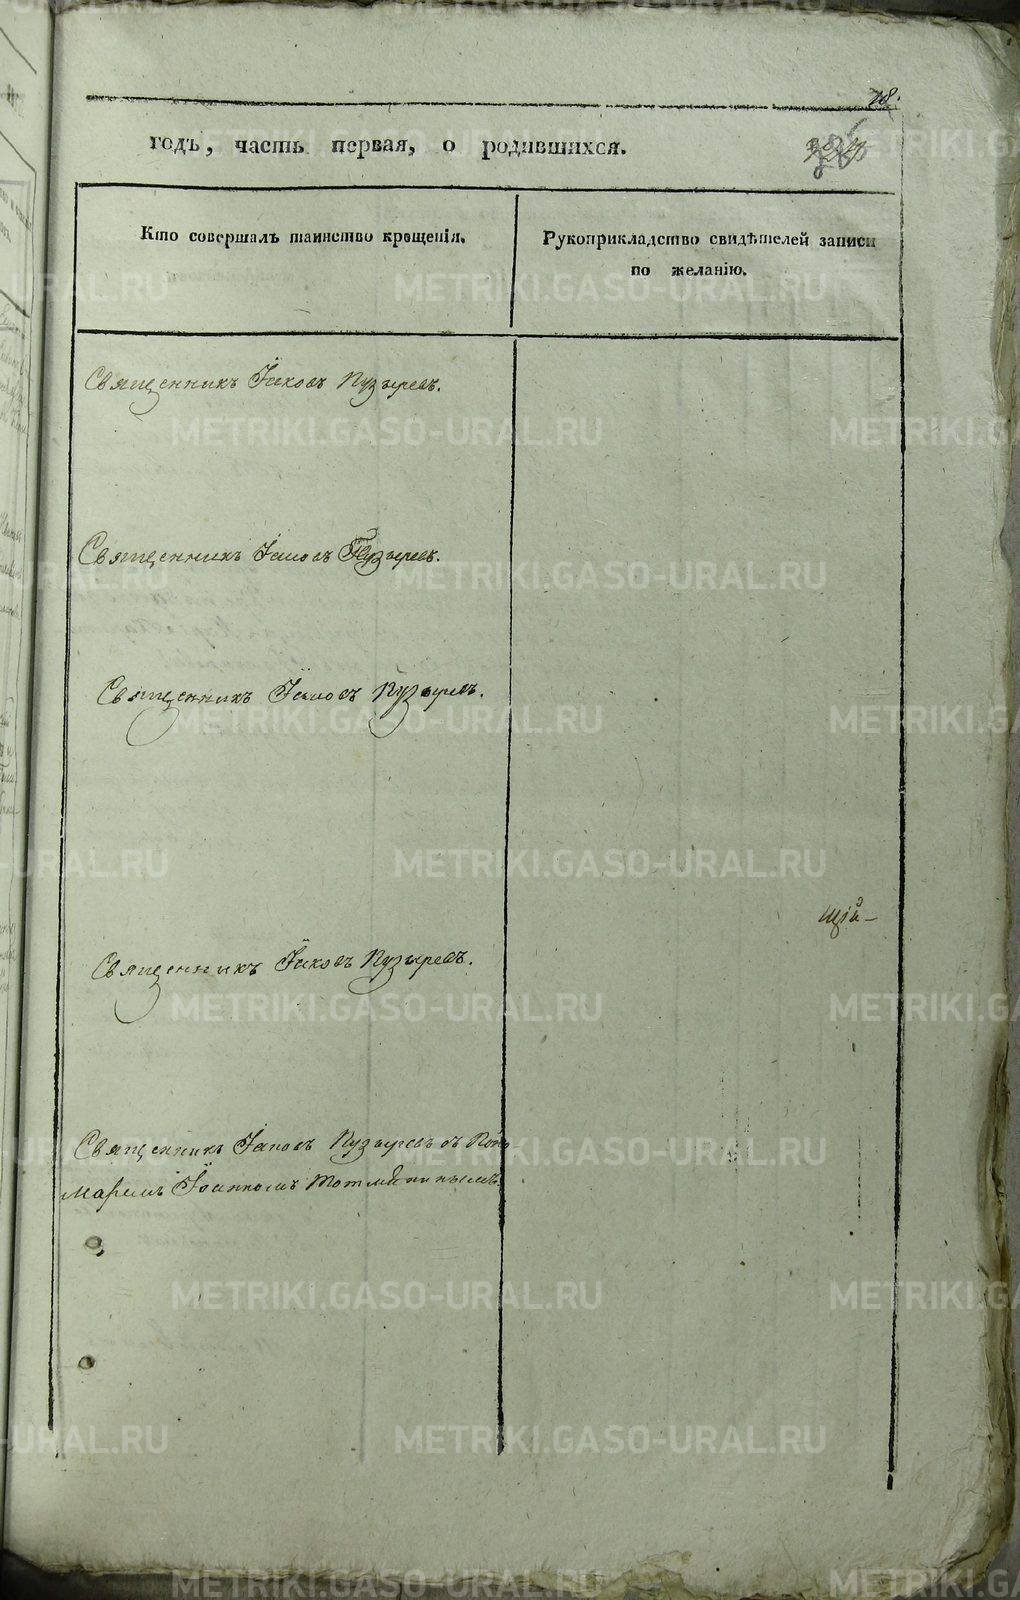 18.
годъ, часть первая, о родившихся.
Кто совершалъ таинство крещенія.
Рукоприкладство свидѣтелей записи
по желанію.
Священникъ Іаковъ Пузыревъ.
Священникъ Іаковъ Пузыревъ.
Священникъ Іаковъ Пузыревъ.
щій
Священникъ Іаковъ Пузыревъ.
Священникъ Іаковъ Пузыревъ съ Поно
маремъ Іоанномъ Тотмянинымъ.
METRIKI.GASO-URAL.RU